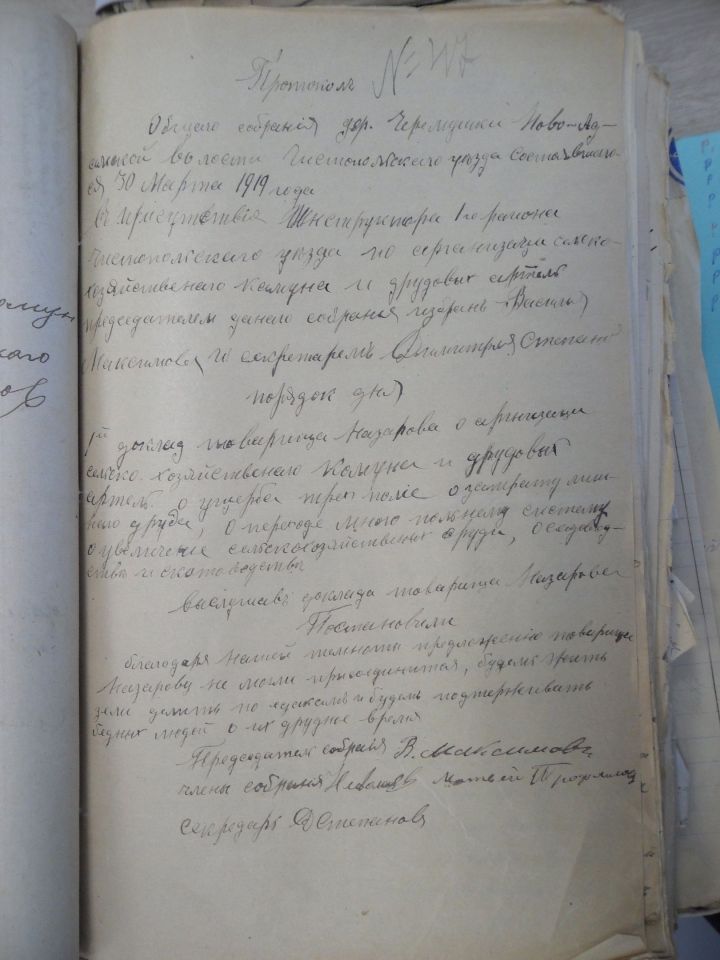 Протоколъ №
Общаго собранія дер. Черемушки Ново-Ад-
амской волости Чистопольскаго уезда состоявшаго-
ся 30 Марта 1919 года
въ присутствіе Инструктора 1го района
Чистопольскаго уезда по организаціи сельско-
хозяйственаго Комуна и друдовых артель
председателем данаго собрания избранъ Василия
Максимова и секретаремъ Димитрия Степано
порядок дня
1й доклад товарища Назарова о арганизаци
сельско. хозяйственаго Комуна и друдовых
артель о ущерба трех поліе о затрату лиш-
него друда, о переходе много польнему систему
о увеличение сельскохозяйственых орудй,
ства и скотоводства
выслушавъ доклада товарища Назарова
Постановили
благодаря нашей темноты предложению товарища
Назарову не могли присоединится, будемъ жить
дели делить по едокамъ и будемъ подтерживать
бедных людей о их друдное время
Председатель собрания В. Максимовъ
члены собрания Матвей
секредарь ДСтепановъ
омун
каго
ов